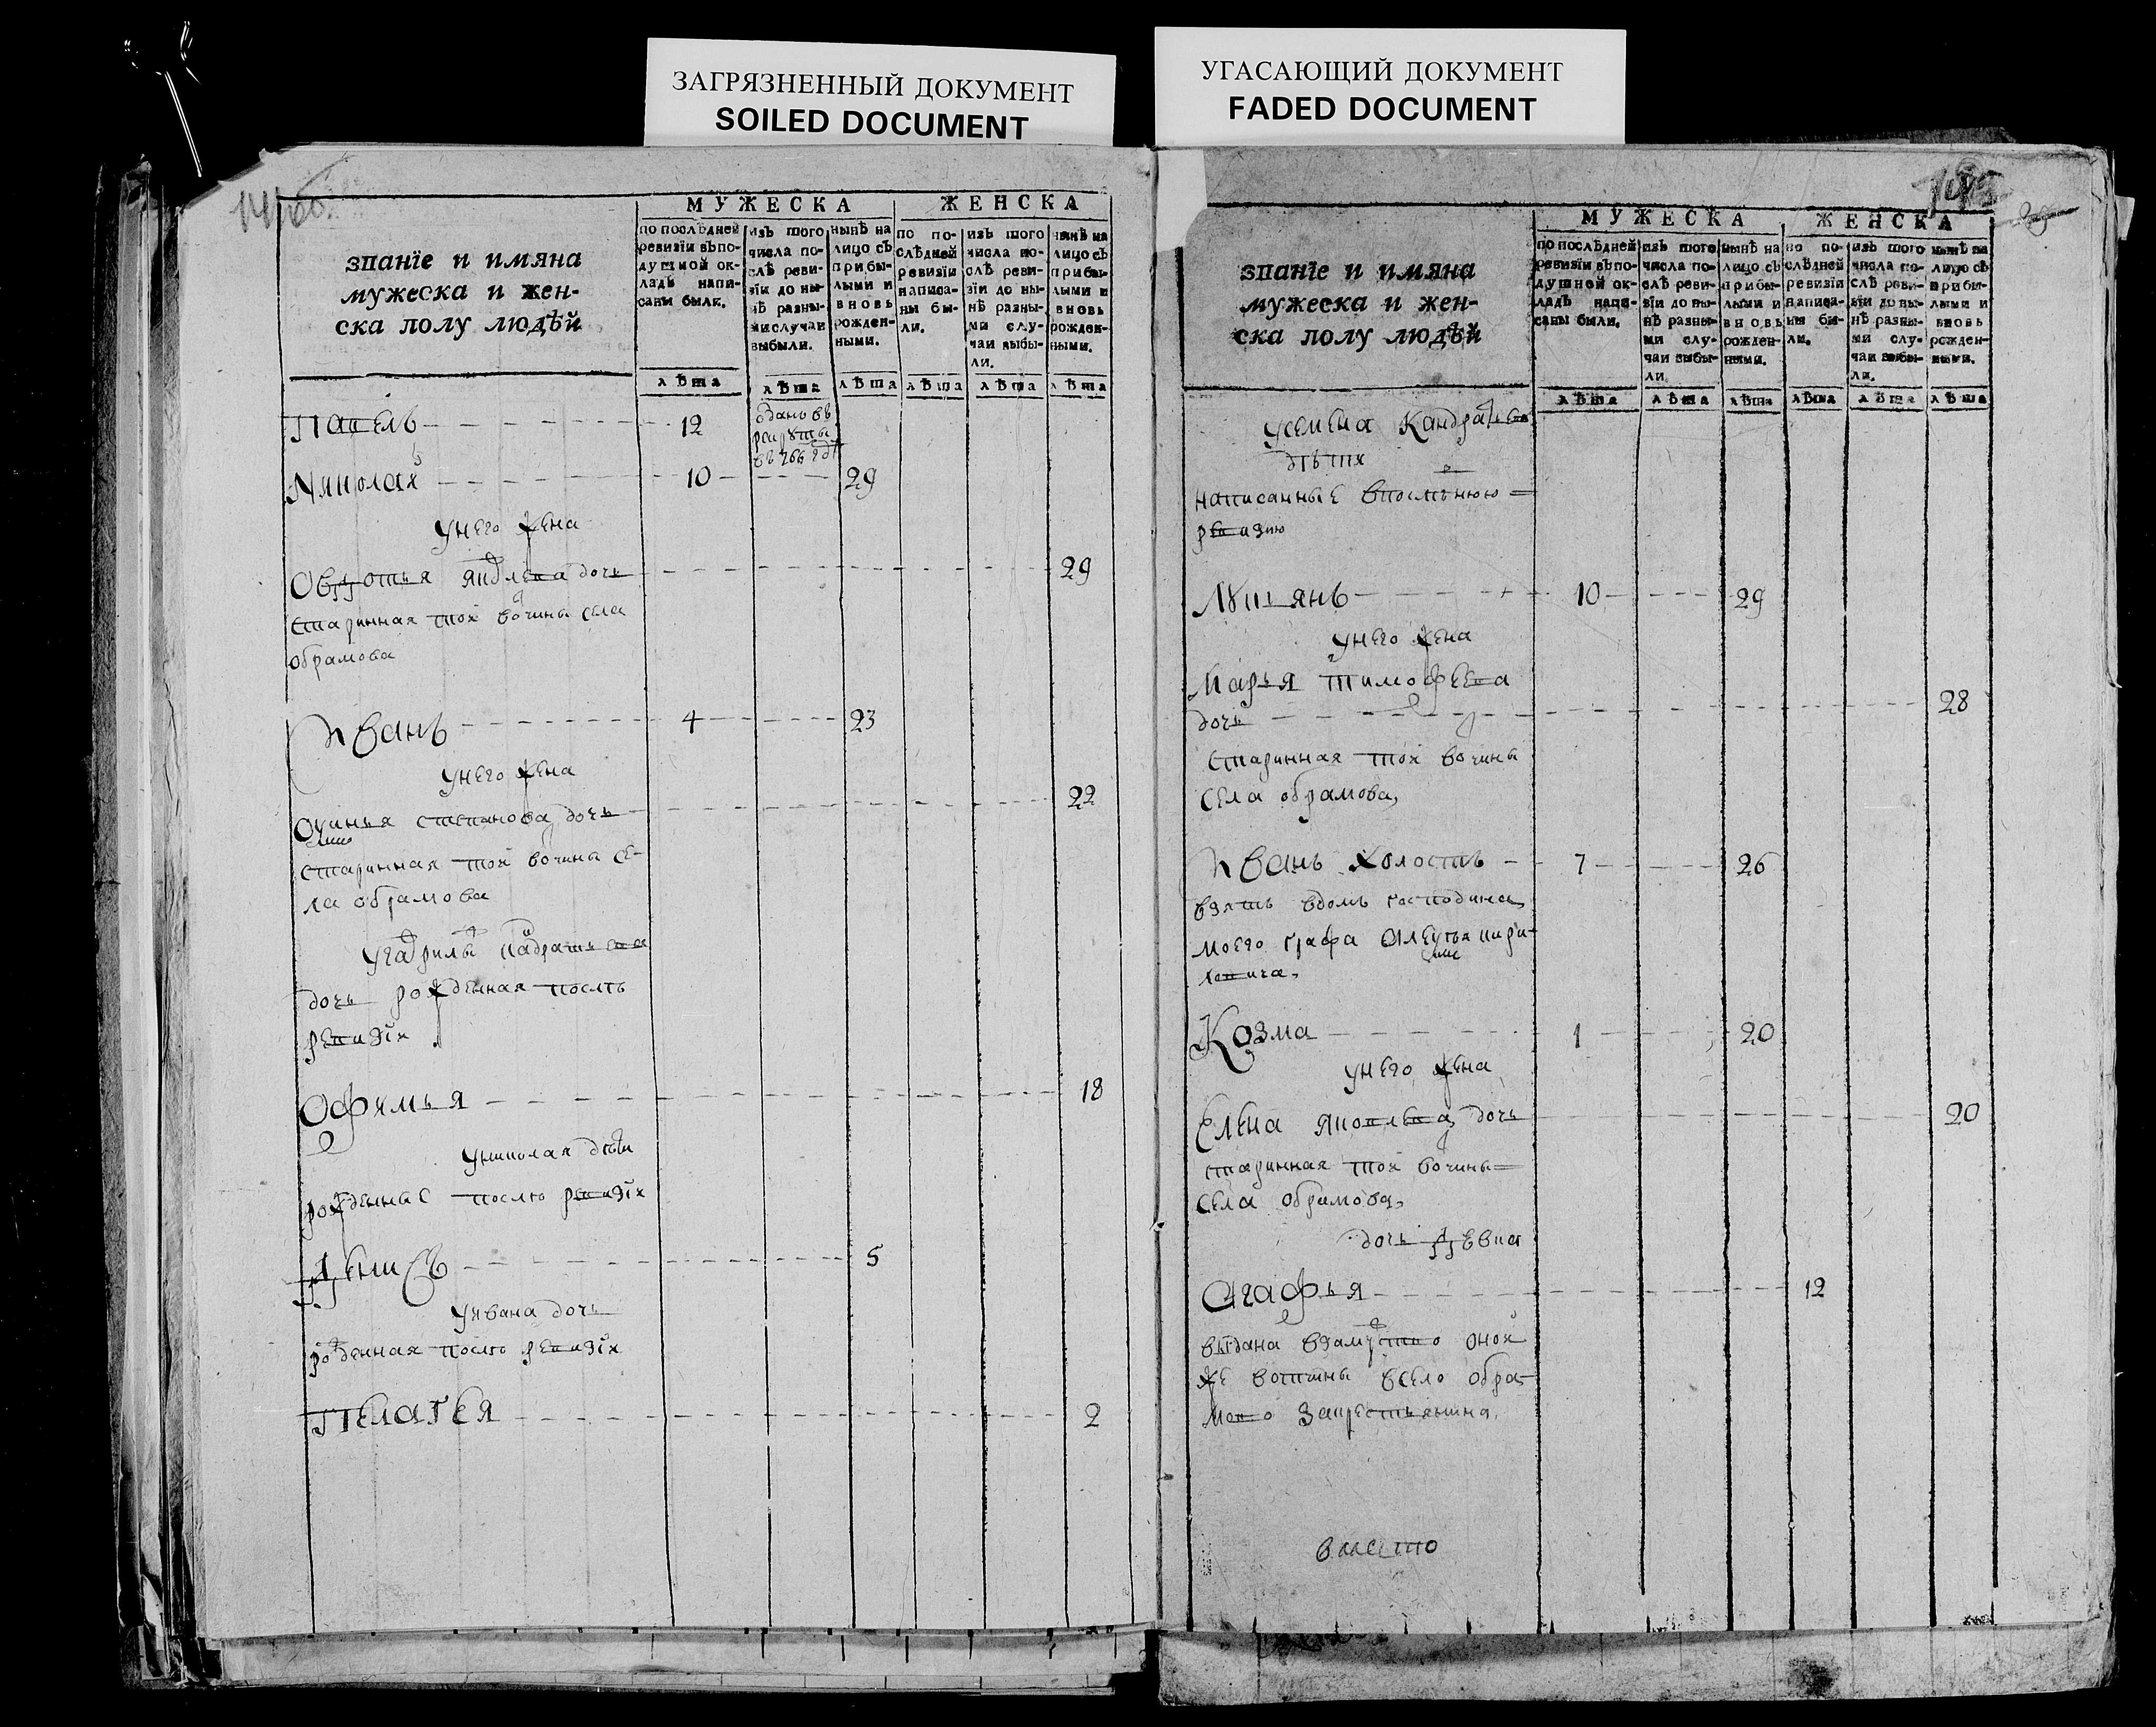 ЗАГРЯЗНЕННЫЙ ДОКУМЕНТ
SOILED DOCUMENT
УГАСАЮЩИЙ ДОКУМЕНТ
FADED DOCUMENT
званїе и имяна
мужеска и жен-
ска полу людѣй
МУЖЕСКА
ЖЕНСКА
по послѣдней
ревизїи въ по-
душной ок-
ладъ напи-
саны были.
изъ того
числа по-
слѣ реви-
зїи до ны-
нѣ разны-
ми случаи
выбыли.
нынѣ на
лицо съ
прибы-
лыми и
вновь
рожден-
ными.
по по-
слѣдней
ревизїи
написа-
ны бы-
ли.
изъ того
числа по-
слѣ реви-
зїи до ны-
нѣ разны-
ми слу-
чаи выбы-
ли.
нынѣ на
лицо съ
прибы-
лыми и
вновь
рожден-
ными.
лѣта лѣта лѣта лѣта лѣта лѣта
Павелъ 12 отданъ въ
рекруты
въ 766 год
Николай 10 29
У него жена
Овдотья дочь 29
старинная той вочины села
обрамова
Иванъ 4 23
У него жена
степанова дочь 22
старинная той вочины се-
ла обрамова
У гаврилы кандратьева
дочь рожденная послѣ
ревизїи
Офимья 18
У николая дѣти
рожденные послѣ ревизїи
Денисъ 5
У ивана дочь
рожденная послѣ ревизїи
Пелагея 2
званїе и имяна
мужеска и жен-
ска полу людѣй
МУЖЕСКА
ЖЕНСКА
по послѣдней
ревизїи въ по-
душной ок-
ладъ напи-
саны были.
изъ того
числа по-
слѣ реви-
зїи до ны-
нѣ разны-
ми слу-
чаи выбы-
ли.
нынѣ на
лицо съ
прибы-
лыми и
вновь
рожден-
ными.
по по-
слѣдней
ревизїи
написа-
ны бы-
ли.
изъ того
числа по-
слѣ реви-
зїи до ны-
нѣ разны-
ми слу-
чаи выбы-
ли.
нынѣ на
лицо съ
прибы-
лыми и
вновь
рожден-
ными.
лѣта лѣта лѣта лѣта лѣта лѣта
У семена кандратьева
дѣти
написанные
ревизию
Лукьянъ 10 29
У него жена
Марья тимофеева
дочь 28
старинная той вочины
села обрамова
Иванъ холостъ 7 26
взятъ в домъ господина
моего графа
Козма 1 20
У него жена
Елена яковлева дочь 20
старинная той вочины
села обрамова
дочь девка
Агафья 12
выдана взамужство оной
же вотчины в село обра-
мово за крестьянина